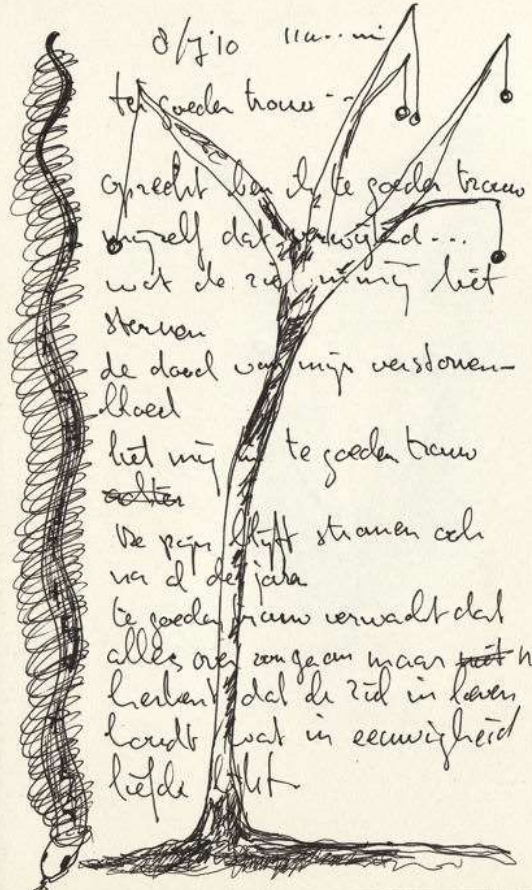 8/7'10
te goeder trouw --
oprecht ben ik te goeder trouw
mijzelf dat verwijtend...
wat de ziel in mij liet
sterven
de dood van mijn verstorven
bloed
liet mij in te goeder trouw
achter
De pijn blijft stromen ook
na al die jaren
te goeder trouw verwacht dat
alles over zou gaan maar niet
herkent dat de ziel in leven
houdt wat in eeuwigheid
liefde lijkt